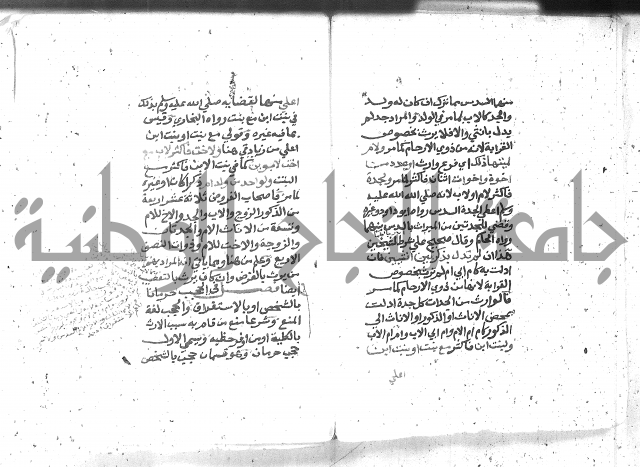 منهما السدس مما ترك ان كان له ولد
والجد كالاب لما مر في الولد والمراد جد لم
يدل بانثي والا فلا يرث بخصوص
القرابة لانه من ذوي الارحام كما مر ولام
لميتها ذلك اي فرع وارث او عدد من
اخوة واخوات اثنان فاكثر لما مر ولجدة
فاكثر لام او لاب لانه صلي الله عليه
وسلم اعطي الجدة السدس رواه ابو داود وغيره
وقضي للجدتين من الميراث بالسدس بينهما
رواه الحاكم وقال صحيح علي شرط الشيخين
هذا ان لم تدل بذكر بين انثيين فان
ادلت به كام ابي ام لم ترث بخصوص
القرابة لانها من ذوي الارحام كما مر
فالوارث من الجدات كل جدة ادلت
بمحض الاناث او الذكور او الاناث الي
الذكور كام ام الام وام ابي الاب وام ام الاب
ولبنت ابن فاكثر مع بنت او بنت ابن
اعلي
اعلي منها لقضائه صلي الله عليه وسلم بذلك
في بنت ابن مع بنت رواه البخاري وقيس
بما فيه غيره وقولي مع بنت او بنت ابن
اعلي من زيادتي هنا ولاخت فاكثر لاب مع
اخت لابوين كما في بنت الابن فاكثر مع
البنت ولواحد من ولد ام ذكرا كان او غيره
لما مر فاصحاب الفروض ثلاثة عشر اربعة
من الذكور الزوج والاب والجد والاخ للام
وتسعة من الاناث الام والجدتان
والزوجة والاخت للام وذوات النصف
الاربع وعلم من هنا ومما ياتي ان المراد بهم
من يرث بالفرض وان كان يرث بالتعصيب
ايضا فصل في الحجب حرمانا
بالشخص او بالاستغراق والحجب لغة
المنع وشرعا منع من قام به سبب الارث
بالكلية او من اوفر حظيه ويسمي الاول
حجب حرمان وهو قسمان حجب بالشخص
جامعة الملك الوطنية